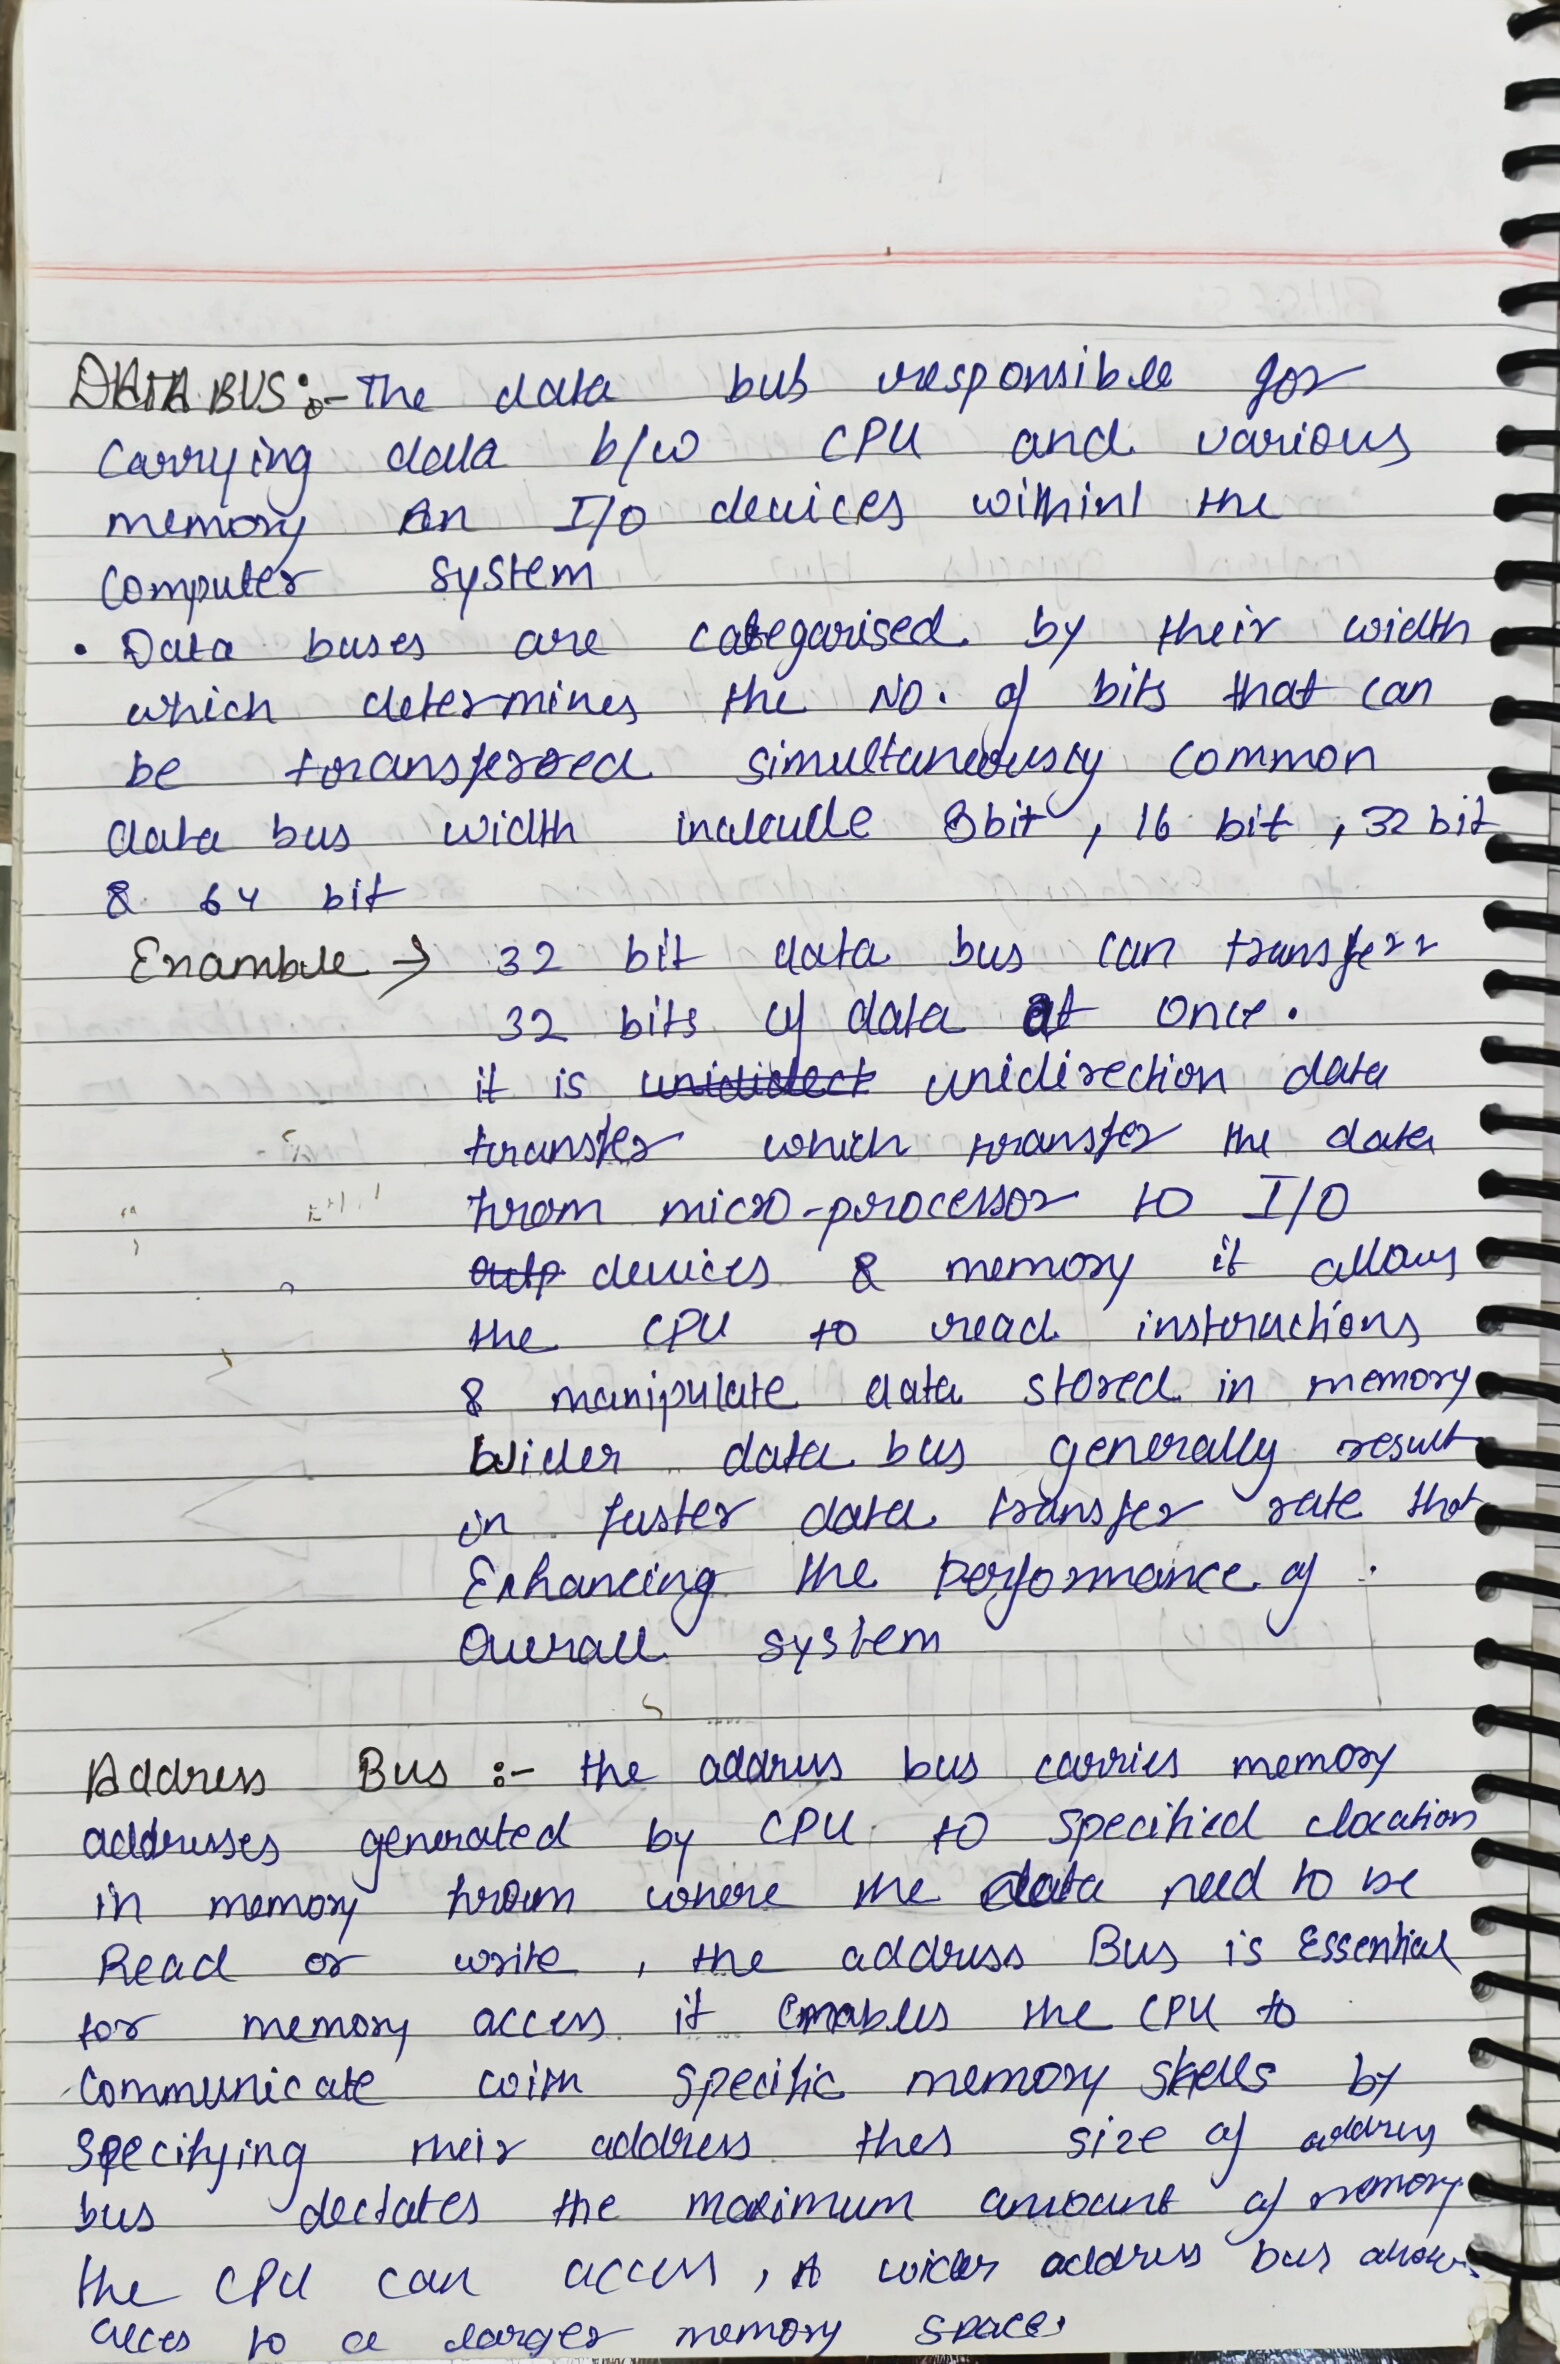 DATA BUS :- The data bus responsible for
Carrying data b/w CPU and various
memory an I/O devices within the
Computer system
• Data buses are categarised by their width
which determines the NO. of bits that can
be transferred simultaneously common
data bus width include 8bit, 16 bit, 32 bit
& 64 bit
Enamble → 32 bit data bus can transferr
32 bits of data at once.
it is unidirection data
transfer which transfer the data
from micro-processor to I/O
devices & memory it allows
the CPU to read instructions
& manipulate data stored in memory
Wider data bus generally result
in faster data transfer rate that
Enhancing the Performance of
Overall system
Address Bus :- the address bus carries memory
addresses generated by CPU to specified location
in memory from where the data need to be
Read or write, the address Bus is Essential
for memory access it enables the CPU to
Communicate with specific memory skells by
Specifying their address thes size of address
bus dectates the maximum amount of memory
the CPU can access, A wider address bus allow
acces to a larger memory space.